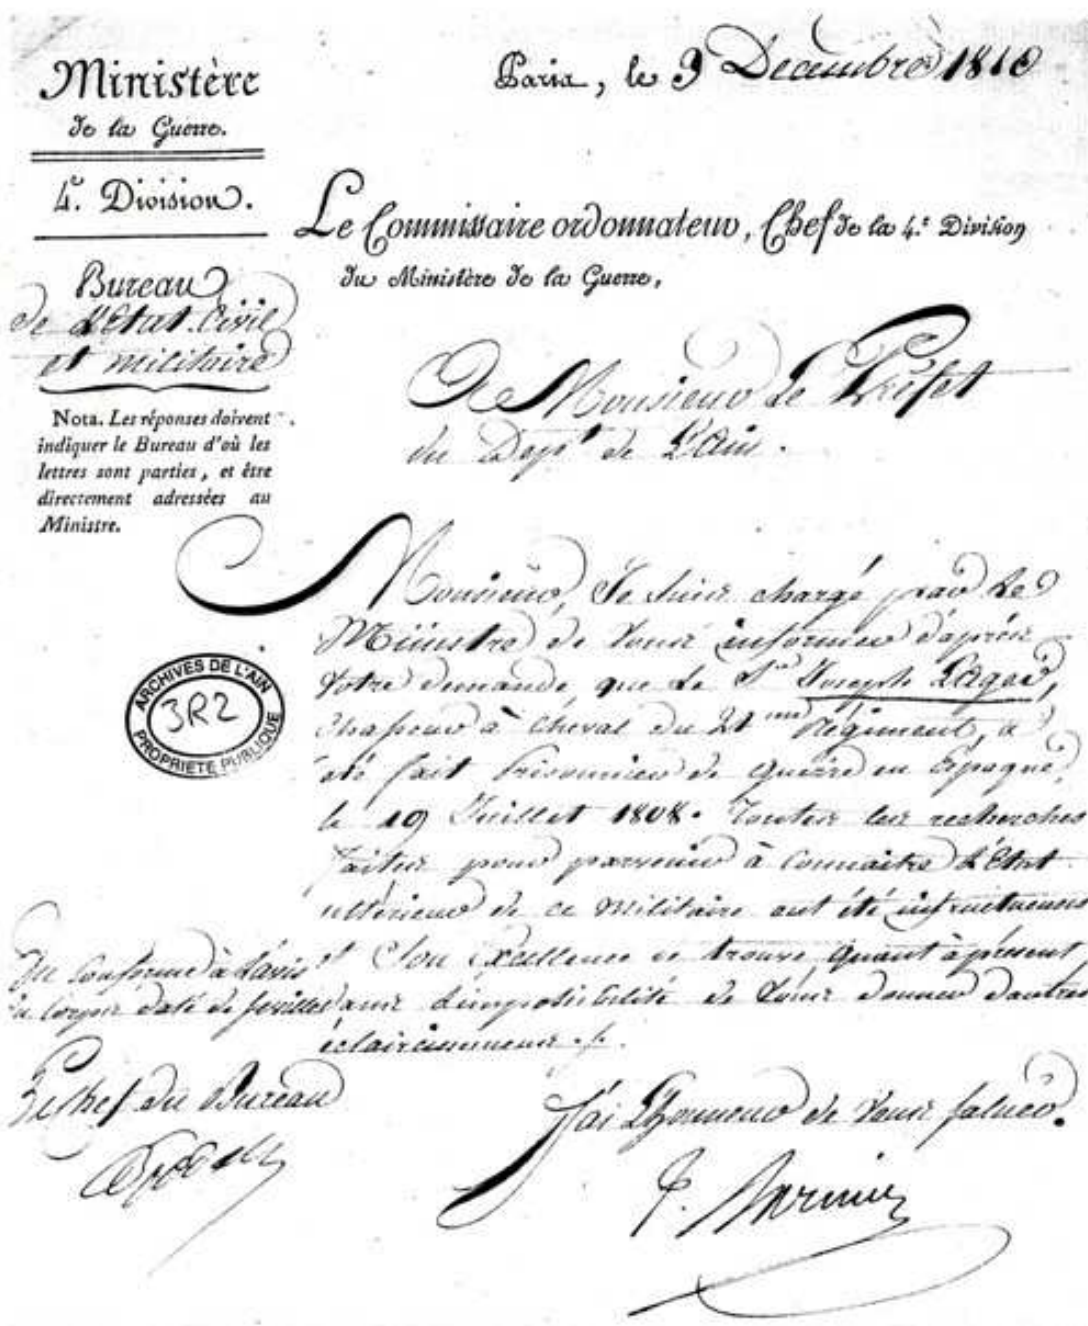 Ministère
de la Guerre.
4.e Division.
Bureau
de L'Etat Civil
et militaire
Nota. Les réponses doivent
indiquer le Bureau d'où les
lettres sont parties, et être
directement adressées au
Ministre.
Paris, le 3 Decembre 1810
Le Commissaire ordonnateur, Chef de la 4.e Division
du Ministère de la Guerre,
Monsieur Le Préfet
du Dep.t de L'Ain.
Monsieur, Je suis chargé par Le
Ministre de vous informer d'après
votre demande, que Le S.r Joseph
chasseur à cheval du 21.me Régiment, a
été fait Prisonnier de guerre en Espagne,
le 19 Juillet 1808. Toutes les recherches
faites pour parvenir à Connaitre L'Etat
ultérieur de ce Militaire ont été infructueuses
et Son Excellence se trouve quant à présent
dans L'impossibilité de vous donner d'autres
éclaircissemens ./.
J'ai L'honneur de vous saluer.
ARCHIVES DE L'AIN
3R2
PROPRIETE PUBLIQUE
conforme à L'avis
du Corps daté de
Le Chef du Bureau